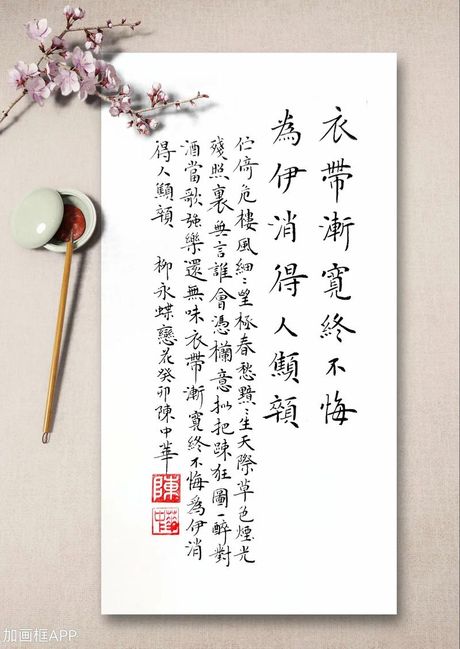 衣帶漸寬終不悔
為伊消得人顦顇
伫倚危樓風細〻望極春愁黯〻生天際草色煙光
殘照裏無言誰會憑欄意拟把踈狂圖一醉對
酒當歌強樂還無味衣帶漸寬終不悔為伊消
得人顦顇 柳永蝶戀花癸卯陳中華
陳
中華
加画框APP